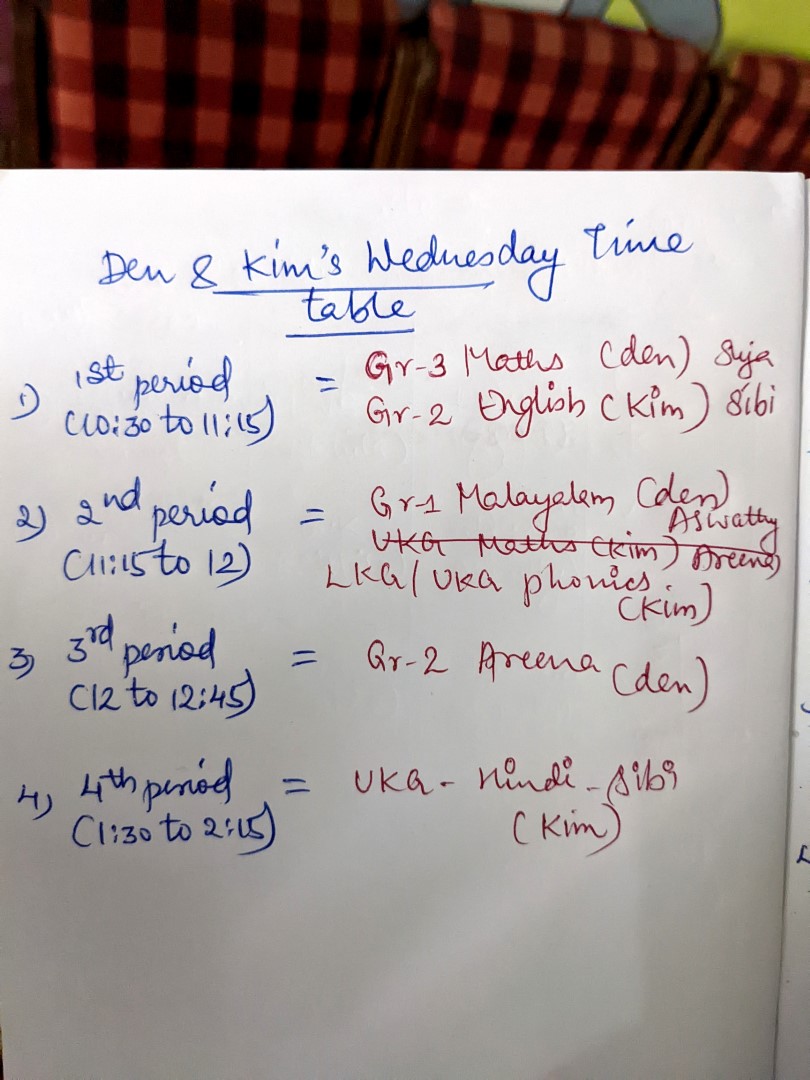 Den & Kim's Wednesday Time
table
1) 1st period = Gr-3 Maths (den) Suja
(10:30 to 11:15) Gr-2 English (Kim) Sibi
2) 2nd period = Gr-1 Malayalam (den)
Aswathy
(11:15 to 12) UKG Maths (Kim) Areena
LKG/UKG phonics.
(Kim)
3) 3rd period = Gr-2 Areena (den)
(12 to 12:45)
4) 4th period = UKG - Hindi - Sibi
(1:30 to 2:15) (Kim)